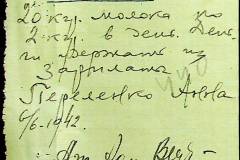 20 кгр. молока по
2 кгр. в день. День-
ги держать из
зарплаты
Переленко Анна
6/6-1942.